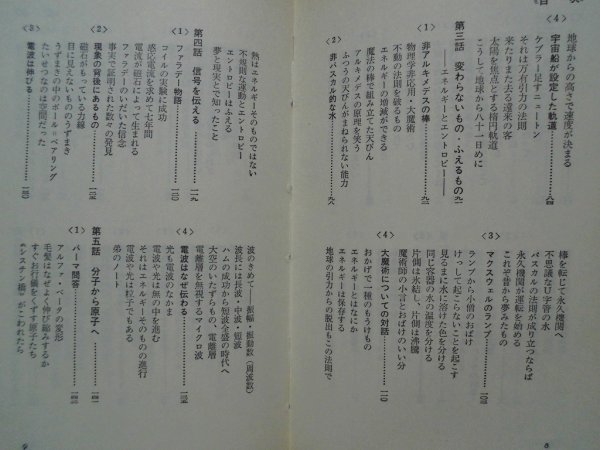 目 次
地球からの高さで速度が決まる
〈4〉 宇宙船が設定した軌道……八四
ケプラー足すニュートン
それは万有引力の法則
来たりまた去る遠来の客
太陽を焦点とする楕円軌道
こうして地球から八十一日めに
第三話 変わらないもの・ふえるもの……九一
――エネルギーとエントロピー――
〈1〉 非アルキメデスの棒……九二
物理学非応用・大魔術
不動の法則を破るもの
エネルギーの増減ができる
魔法の棒で組み立てた天びん
アルキメデスの原理を笑う
ふつうの天びんがまねられない能力
〈2〉 非パスカル的な水……九八
棒を転じて永久機関へ
不思議なU字管の水
パスカルの法則が成り立つならば
永久機関が運転を始める
これぞ昔から夢みたもの
〈3〉 マクスウェルのランプ……一〇三
ランプから小僧のおばけ
けっして起こらないことを起こす
見るまに水に溶けた色を分ける
同じ容器の水の温度を分ける
片側は氷結し、片側は沸騰
魔術師の小言とおばけのいい分
〈4〉 大魔術についての対話……一一〇
おかげで一種のもうけもの
エネルギーとはなにか
エネルギーは保存する
地球の引力からの脱出もこの法則で
8
熱はエネルギーそのものではない
不規則な運動とエントロピー
エントロピーはふえる
夢と現実とで知ったこと
第四話 信号を伝える……一一九
〈1〉 ファラデー物語……一二〇
コイルの実験に成功
感応電流を求めて七年間
電流が磁石によって生まれる
ファラデーのいだいた信念
事実で証明された数々の発見
〈2〉 現象の背後にあるもの
磁石がもっている力線
目に見えないもののうずまき
うずまきの中のボール=ベアリング
たいせつなのは空間だった
〈3〉 電波は伸びる
波のきめて――振幅・振動数(周波数)
波長には長波・中波・短波
ハムの成功から短波全盛の時代へ
大空のいたずらもの、電離層
電離層を無視するマイクロ波
〈4〉 電波はなぜ伝わる……一三六
光も電波のなかま
電波や光は無の中を進む
それはエネルギーそのものの進行
電波や光は粒子でもある
弟のノート
第五話 分子から原子へ……一四一
〈1〉 パーマ問答……一四二
アルファ・ベータの変形
毛髪はなぜよく伸び縮みするか
すぐお行儀をくずす原子たち
《シスチン橋》がこわれたら
9